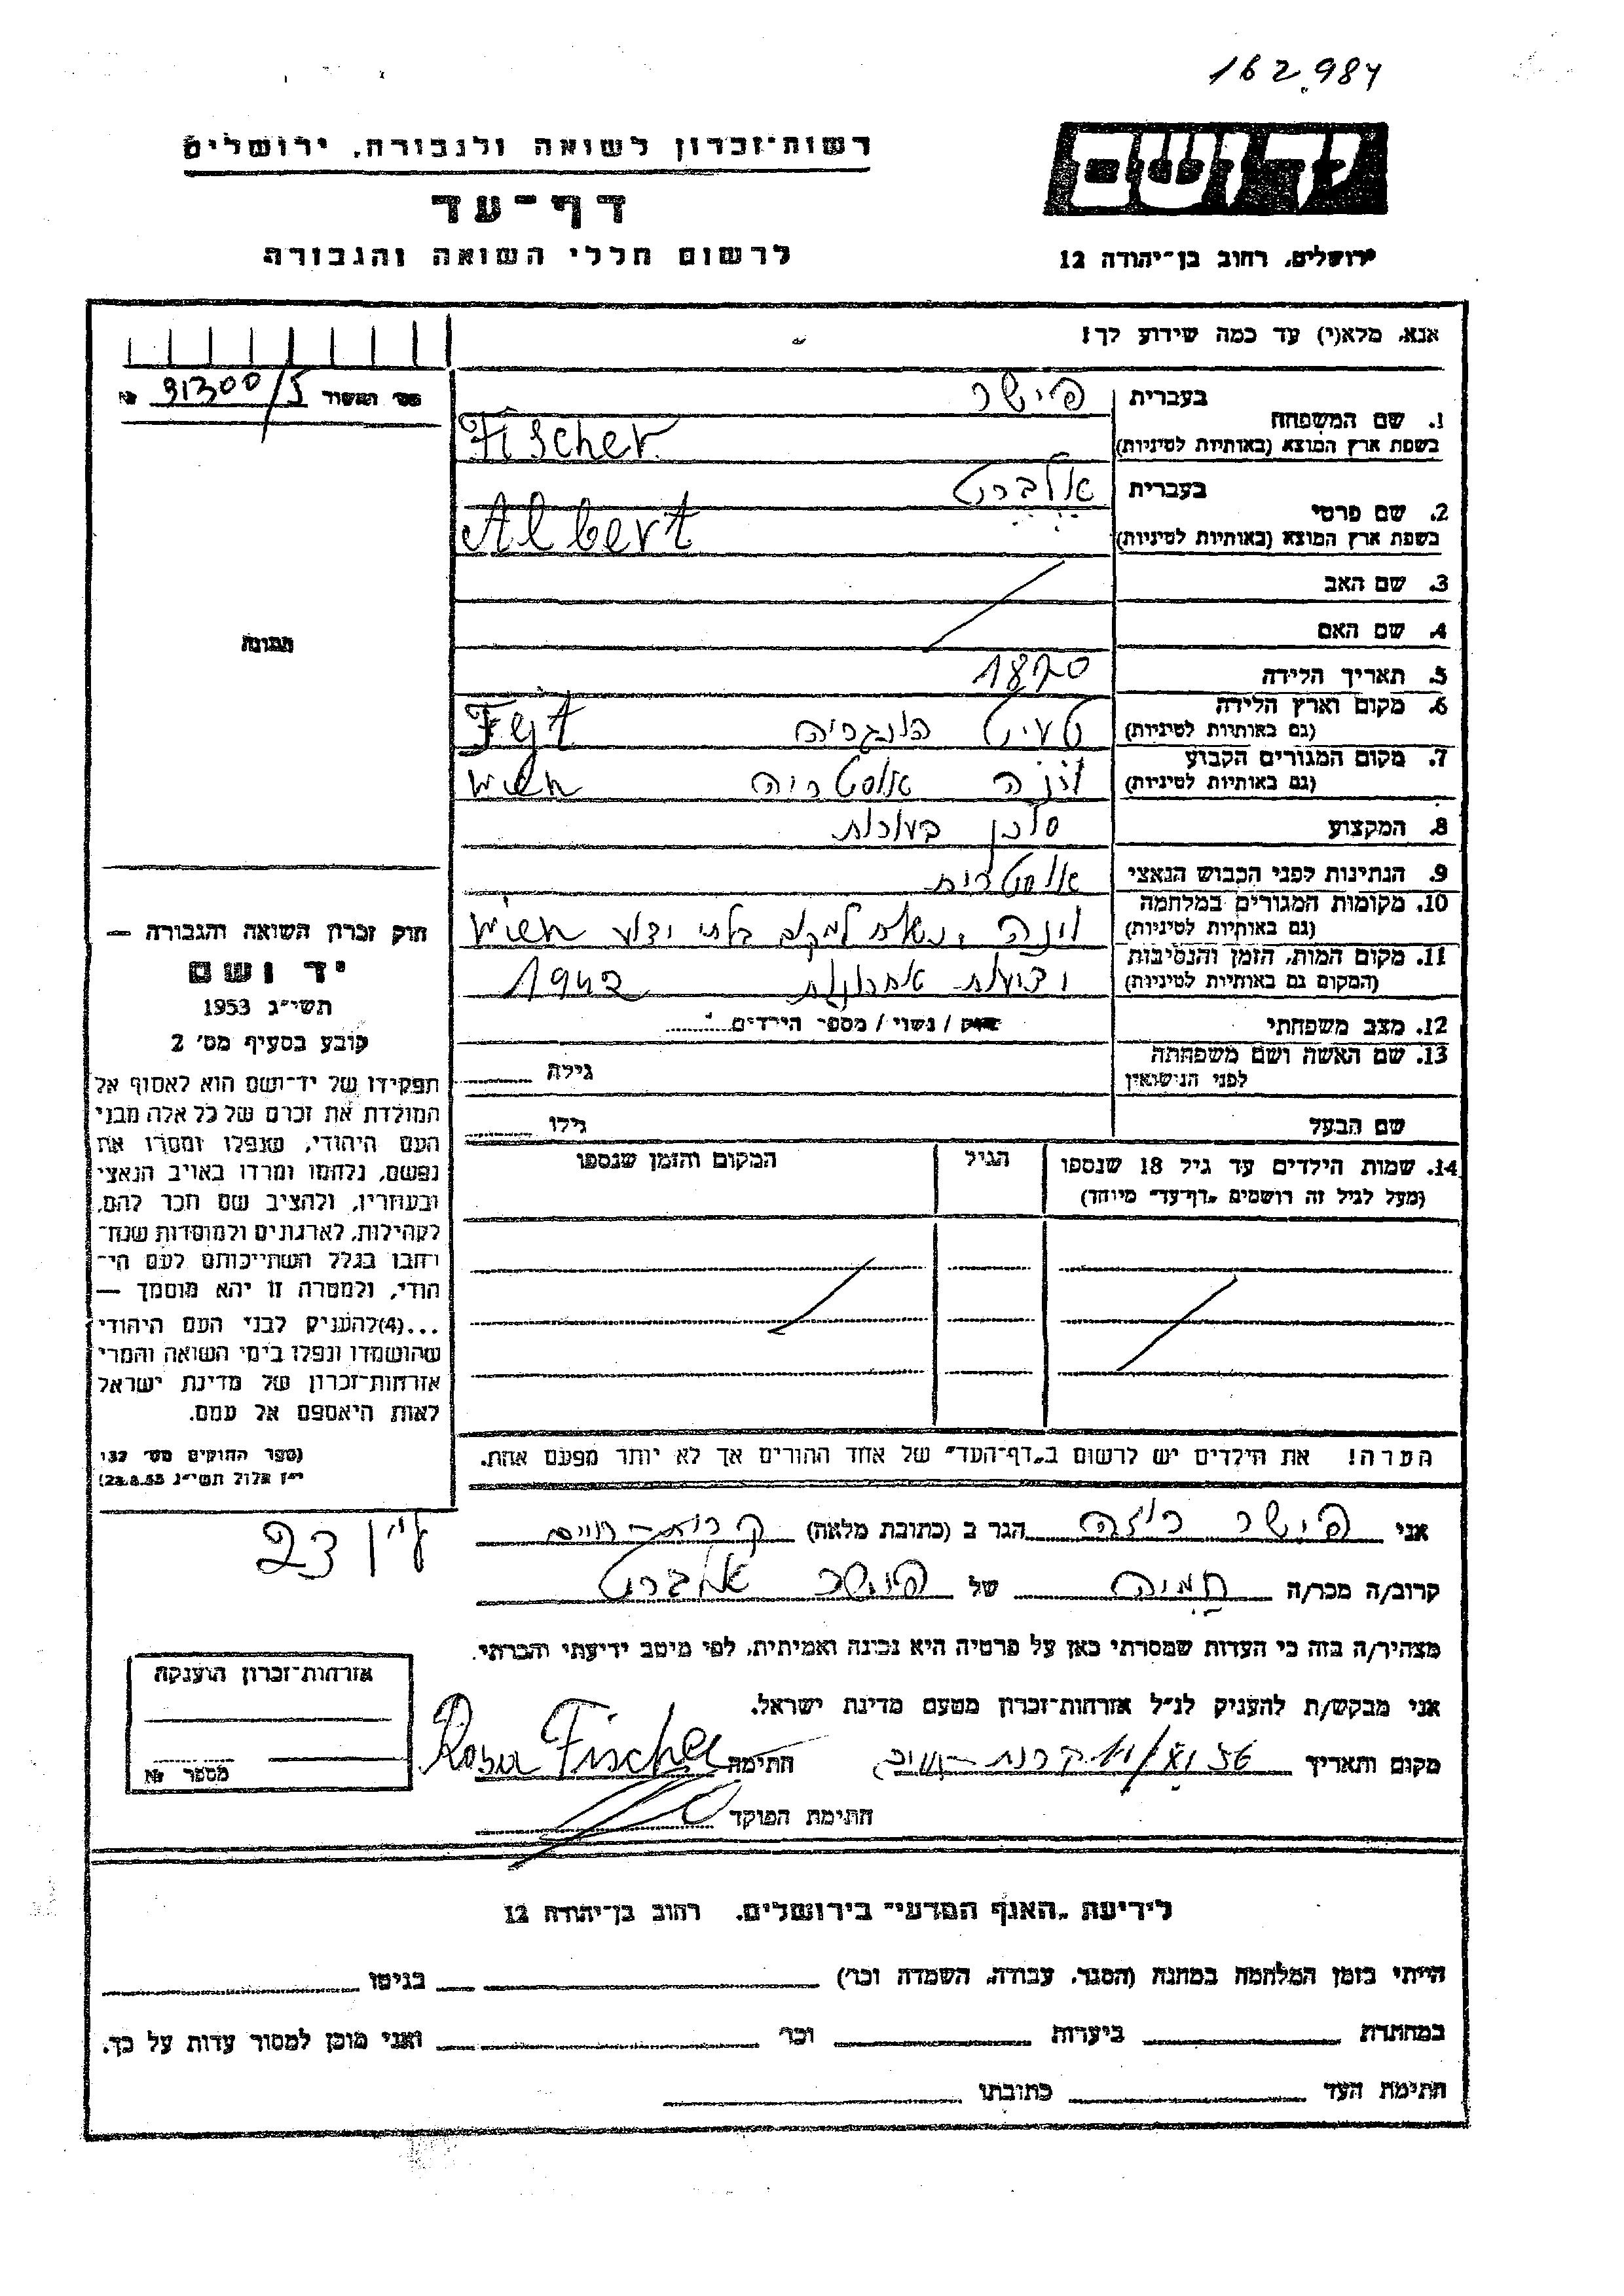 162.984
יד ושם
רשות־זכרון לשואה ולגבורה, ירושלים
דף־עד
לרשום חללי השואה והגבורה
ירושלים, רחוב בן־יהודה 12
אנא, מלא(י) עד כמה שידוע לך!
מס׳ האשור 91300/5 №
תמונה
1. שם המשפחה
בעברית פישר
בשפת ארץ המוצא (באותיות לטיניות) Fischer
2. שם פרטי
בעברית אלברט
בשפת ארץ המוצא (באותיות לטיניות) Albert
3. שם האב
4. שם האם
5. תאריך הלידה 1870
6. מקום וארץ הלידה
(גם באותיות לטיניות) הונגריה
7. מקום המגורים הקבוע
(גם באותיות לטיניות) וינה אוסטריה Wien
8. המקצוע סוכן
9. הנתינות לפני הכבוש הנאצי אוסטרית
10. מקומות המגורים במלחמה
(גם באותיות לטיניות) וינה ונשלח למקום בלתי ידוע Wien
11. מקום המות, הזמן והנסיבות
(המקום גם באותיות לטיניות) וידיעות אחרונות 1942
12. מצב משפחתי
רוק / נשוי / מספר הילדים
13. שם האשה ושם משפחתה
לפני הנישואין
גילה
שם הבעל
גילו
14. שמות הילדים עד גיל 18 שנספו
(מעל לגיל זה רושמים „דף־עד״ מיוחד)
הגיל
המקום והזמן שנספו
הערה! את הילדים יש לרשום ב„דף־העד״ של אחד ההורים אך לא יותר מפעם אחת.
חוק זכרון השואה והגבורה —
יד ושם
תשי״ג 1953
קובע בסעיף מס׳ 2
תפקידו של יד־ושם הוא לאסוף אל
המולדת את זכרם של כל אלה מבני
העם היהודי, שנפלו ומסרו את
נפשם, נלחמו ומרדו באויב הנאצי
ובעוזריו, ולהציב שם וזכר להם,
לקהילות, לארגונים ולמוסדות שנח־
רבו בגלל השתייכותם לעם הי־
הודי, ולמטרה זו יהא מוסמך —
...(4) להעניק לבני העם היהודי
שהושמדו ונפלו בימי השואה והמרי
אזרחות־זכרון של מדינת ישראל
לאות היאספם אל עמם.
(ספר החוקים מס׳ 132
י״ז אלול תשי״ג 28.8.53)
אני פישר רוזה הגר ב (כתובת מלאה) קרית־חיים
23
קרוב/ה מכר/ה של פישר אלברט
מצהיר/ה בזה כי העדות שמסרתי כאן על פרטיה היא נכונה ואמיתית, לפי מיטב ידיעתי והכרתי.
אני מבקש/ת להעניק לנ״ל אזרחות־זכרון מטעם מדינת ישראל.
מקום ותאריך 11/XI 56 חתימה Rosa Fischer
חתימת הפוקד
אזרחות־זכרון הוענקה
מספר №
לידיעת „האגף המדעי״ בירושלים, רחוב בן־יהודה 12
הייתי בזמן המלחמה במחנה (הסגר, עבודה, השמדה וכו׳) בגיטו
במחתרת ביערות וכו׳ ואני מוכן למסור עדות על כך.
חתימת העד כתובתו